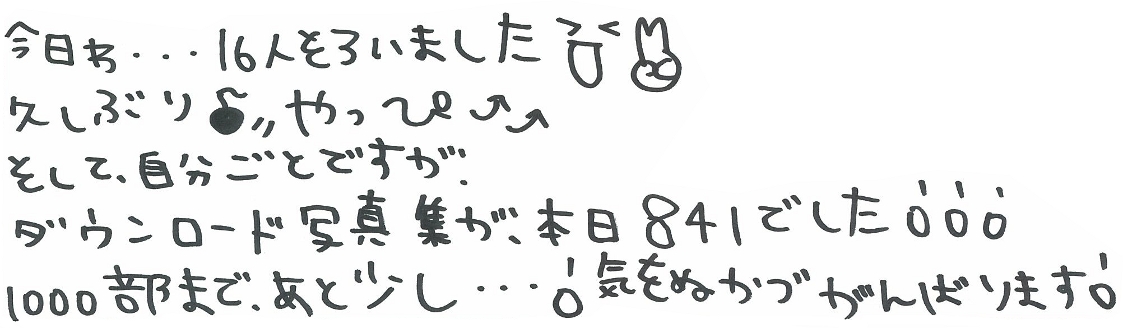 今日わ・・・16人そろいました
久しぶり♪〃やっぴ⤴⤴
そして、自分ごとですが、
ダウンロード写真集が、本日841でした!!!
1000部まで、あと少し・・・!気をぬかづがんばります!